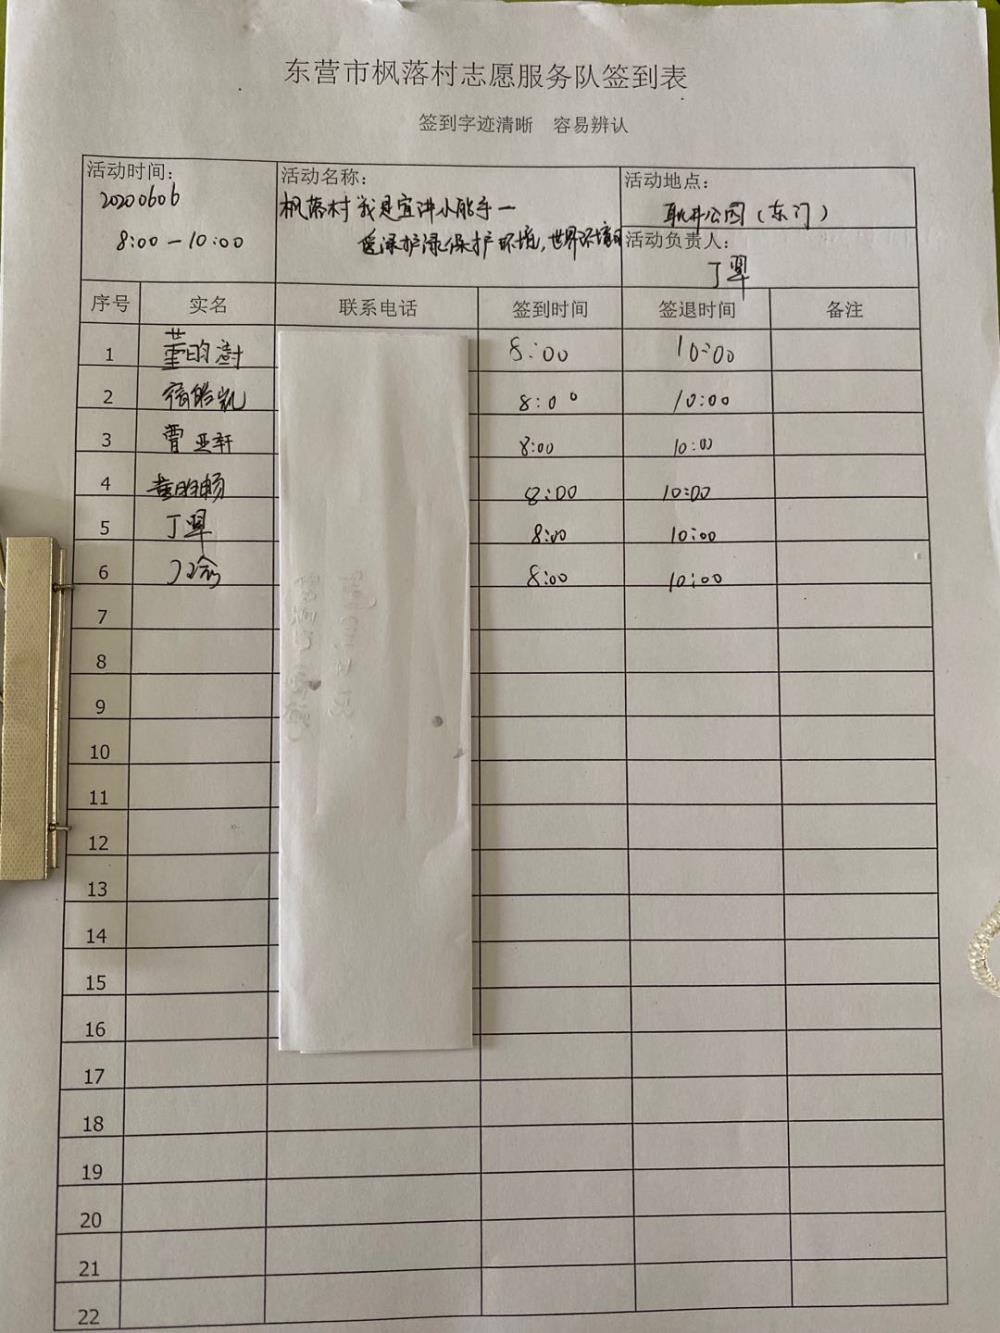 东营市枫落村志愿服务队签到表
签到字迹清晰 容易辨认
活动时间：
20200606
8:00-10:00
活动名称：
枫落村 我是宣讲小能手一
爱绿护绿保护环境，世界环境日
活动地点：
耿井公园（东门）
活动负责人：
丁翠
序号 实名 联系电话 签到时间 签退时间 备注
1 董昀澍 8:00 10:00
2 皓凯 8:00 10:00
3 曹亚轩 8:00 10:00
4 董昀畅 8:00 10:00
5 丁翠 8:00 10:00
6 8:00 10:00
7
8
9
10
11
12
13
14
15
16
17
18
19
20
21
22